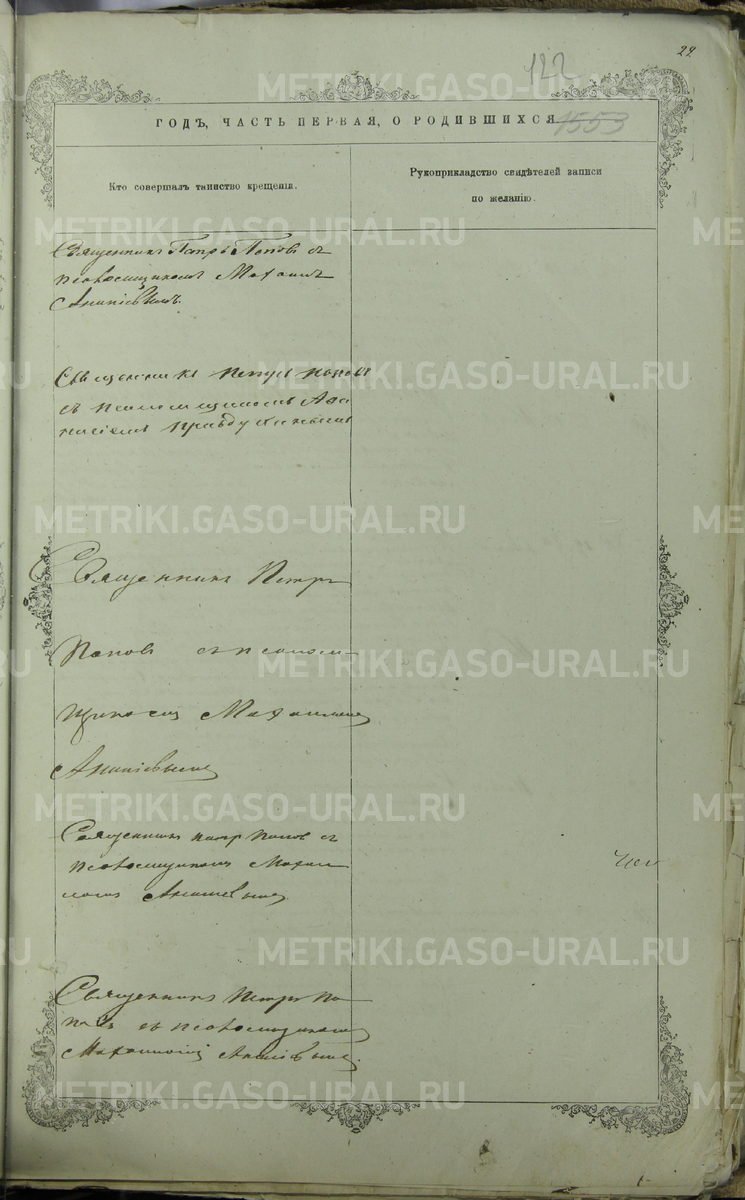 29
122
ГОДЪ, ЧАСТЬ ПЕРВАЯ, О РОДИВШИХСЯ.
1553
Кто совершалъ таинство крещенія.
Рукоприкладство свидѣтелей записи
по желанію.
Священникъ Петръ Поповъ съ
псаломщикомъ Михаил
Ананіевымъ.
Священникъ Петръ Поповъ
съ псаломщикомъ Афа
насіемъ Правдухинымъ
Священникъ Петръ
Поповъ съ псалом-
щикомъ Михаиломъ
Ананіевымъ
Священникъ Петръ Поповъ съ
псаломщикомъ Михаи
ломъ Ананіевымъ
Священникъ Петръ По-
повъ съ псаломщикомъ
Михаиломъ Ананіевымъ.
METRIKI.GASO-URAL.RU